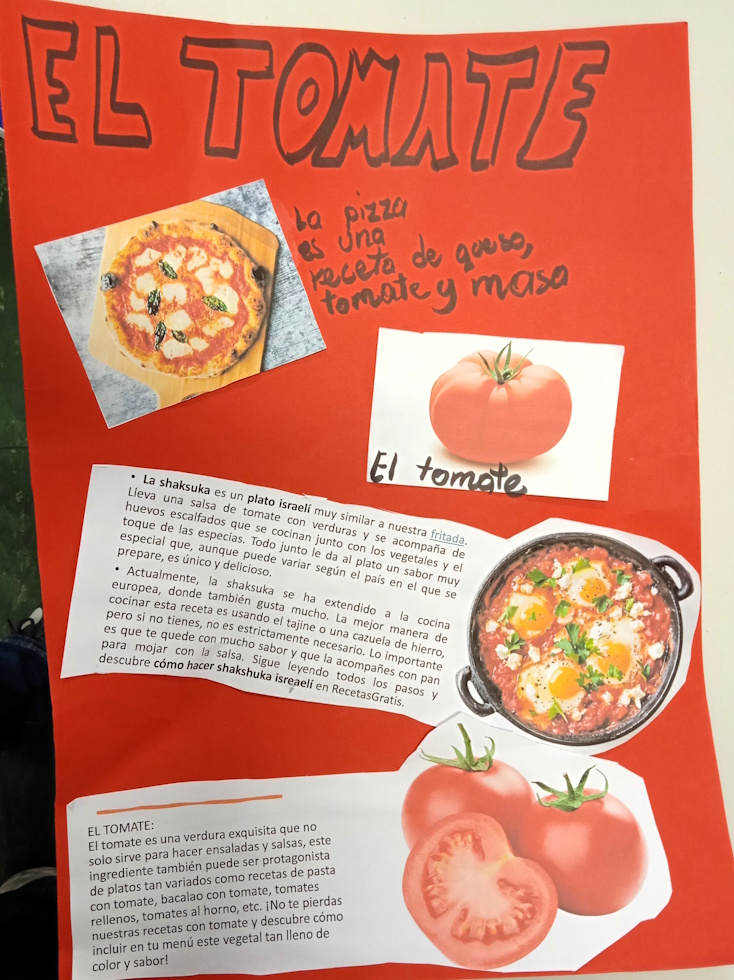 EL TOMATE
La pizza
es una
receta de queso,
tomate y masa
El tomate
• La shaksuka es un plato israelí muy similar a nuestra fritada.
Lleva una salsa de tomate con verduras y se acompaña de
huevos escalfados que se cocinan junto con los vegetales y el
toque de las especias. Todo junto le da al plato un sabor muy
especial que, aunque puede variar según el país en el que se
prepare, es único y delicioso.
• Actualmente, la shaksuka se ha extendido a la cocina
europea, donde también gusta mucho. La mejor manera de
cocinar esta receta es usando el tajine o una cazuela de hierro,
pero si no tienes, no es estrictamente necesario. Lo importante
es que te quede con mucho sabor y que la acompañes con pan
para mojar con la salsa. Sigue leyendo todos los pasos y
descubre cómo hacer shakshuka isreaelí en RecetasGratis.
EL TOMATE:
El tomate es una verdura exquisita que no
solo sirve para hacer ensaladas y salsas, este
ingrediente también puede ser protagonista
de platos tan variados como recetas de pasta
con tomate, bacalao con tomate, tomates
rellenos, tomates al horno, etc. ¡No te pierdas
nuestras recetas con tomate y descubre cómo
incluir en tu menú este vegetal tan lleno de
color y sabor!